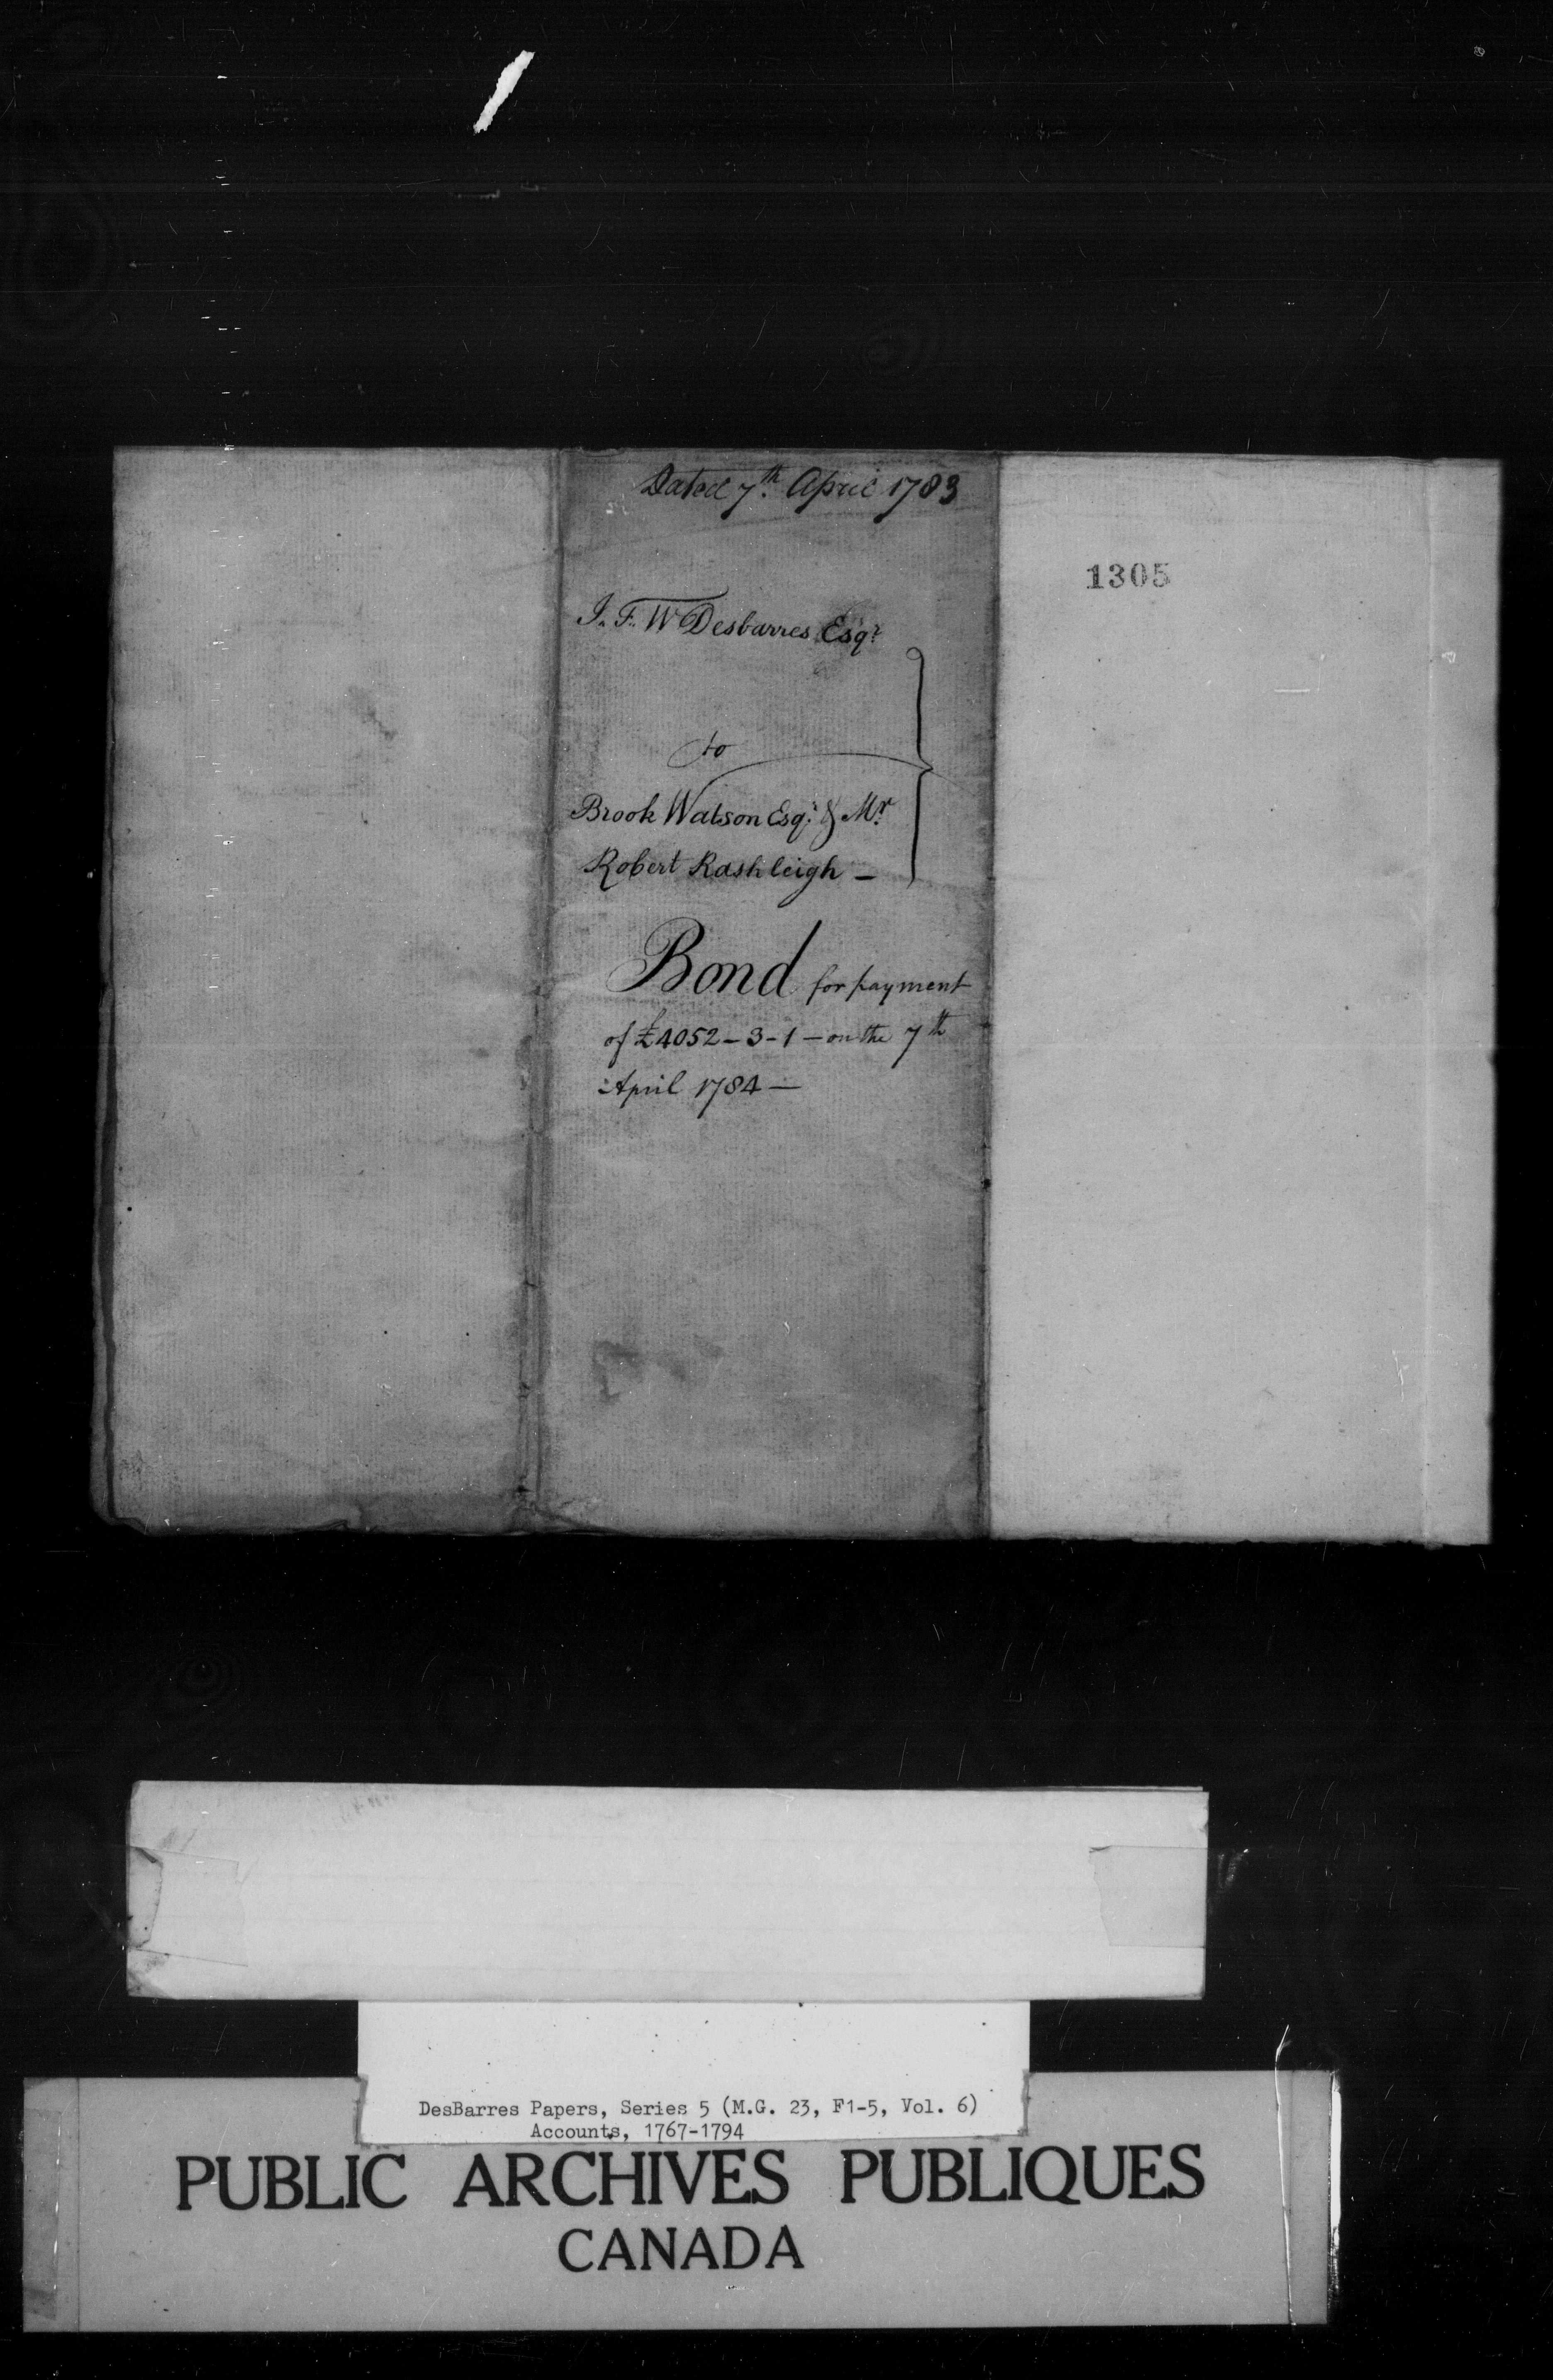 Dated 7th. April 1783
1305
J. F. W Desbarres Esqr
to
Brook Watson Esqr. & Mr.
Robert Rashleigh —
Bond for payment
of £4052-3-1 — on the 7th
April 1784 —
DesBarres Papers, Series 5 (M.G. 23, F1-5, Vol. 6)
Accounts, 1767-1794
PUBLIC ARCHIVES PUBLIQUES
CANADA